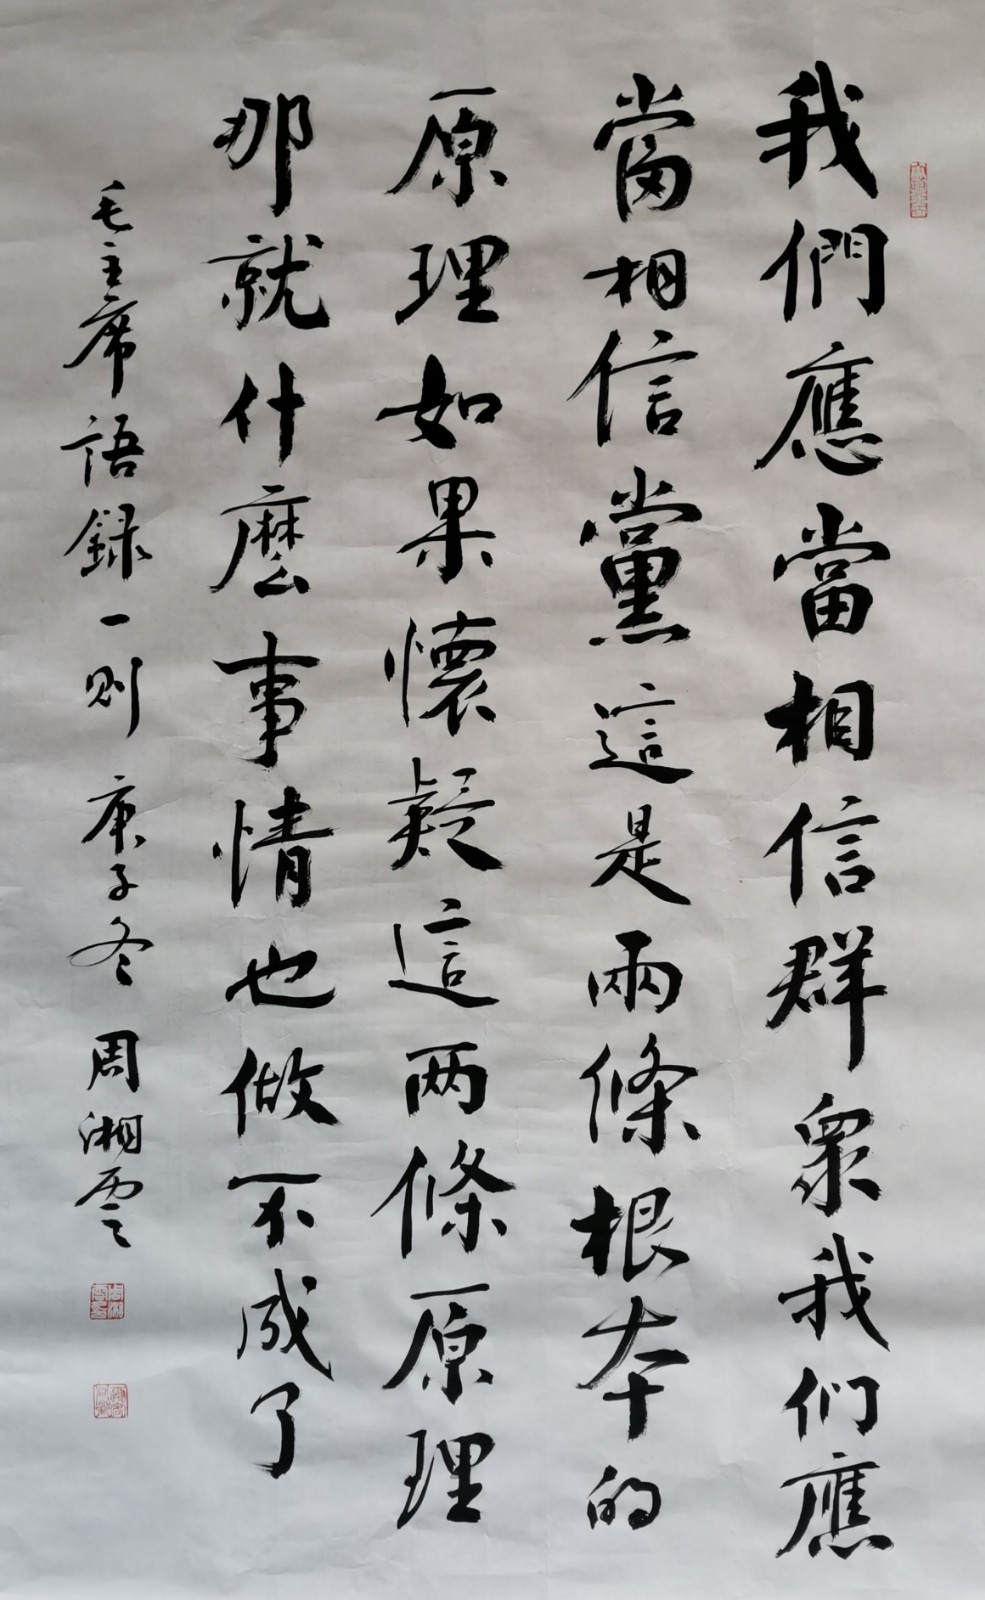 我們應當相信群眾我们應
當相信黨這是兩條根夲的
原理如果懷疑這两條原理
那就什麽事情也做不成了
毛主席語録一则 庚子冬 周湘雲